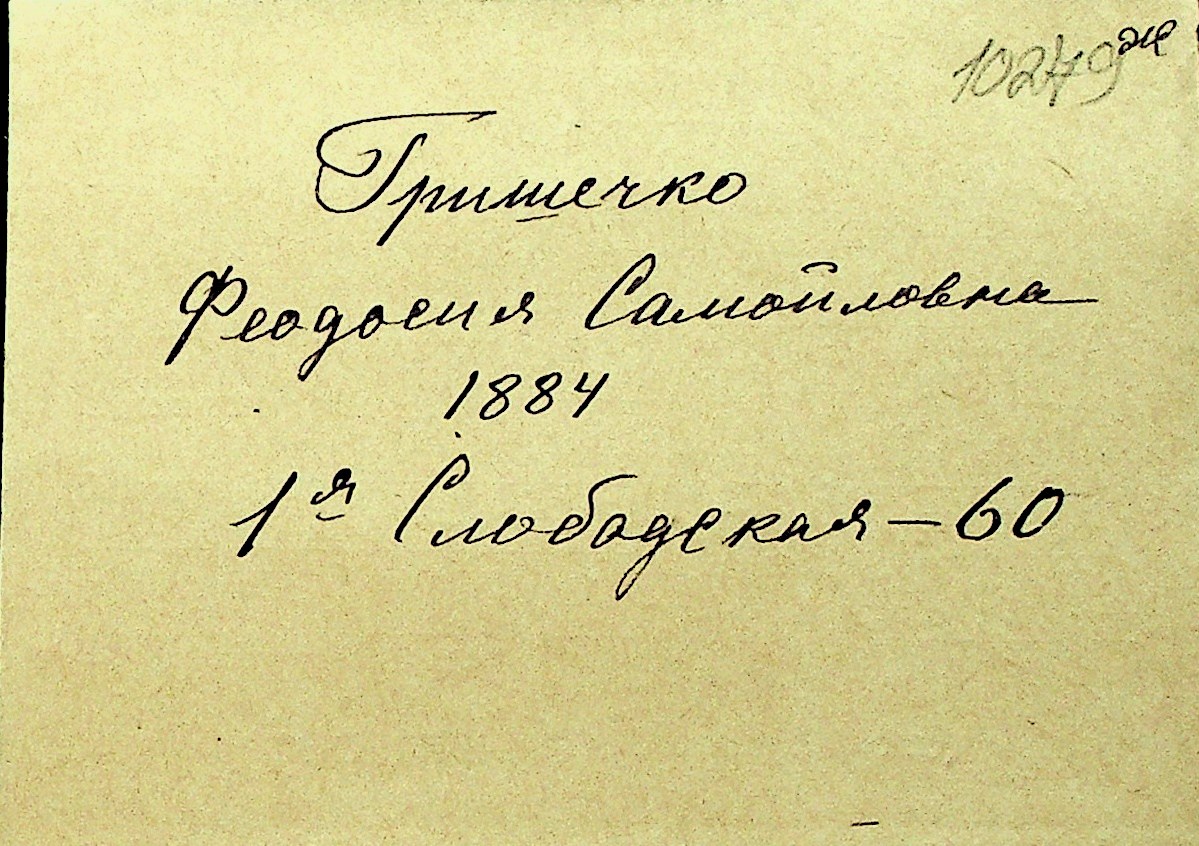 10249 ж
Гришечко
Феодосия Самойловна
1884
1я Слободская – 60